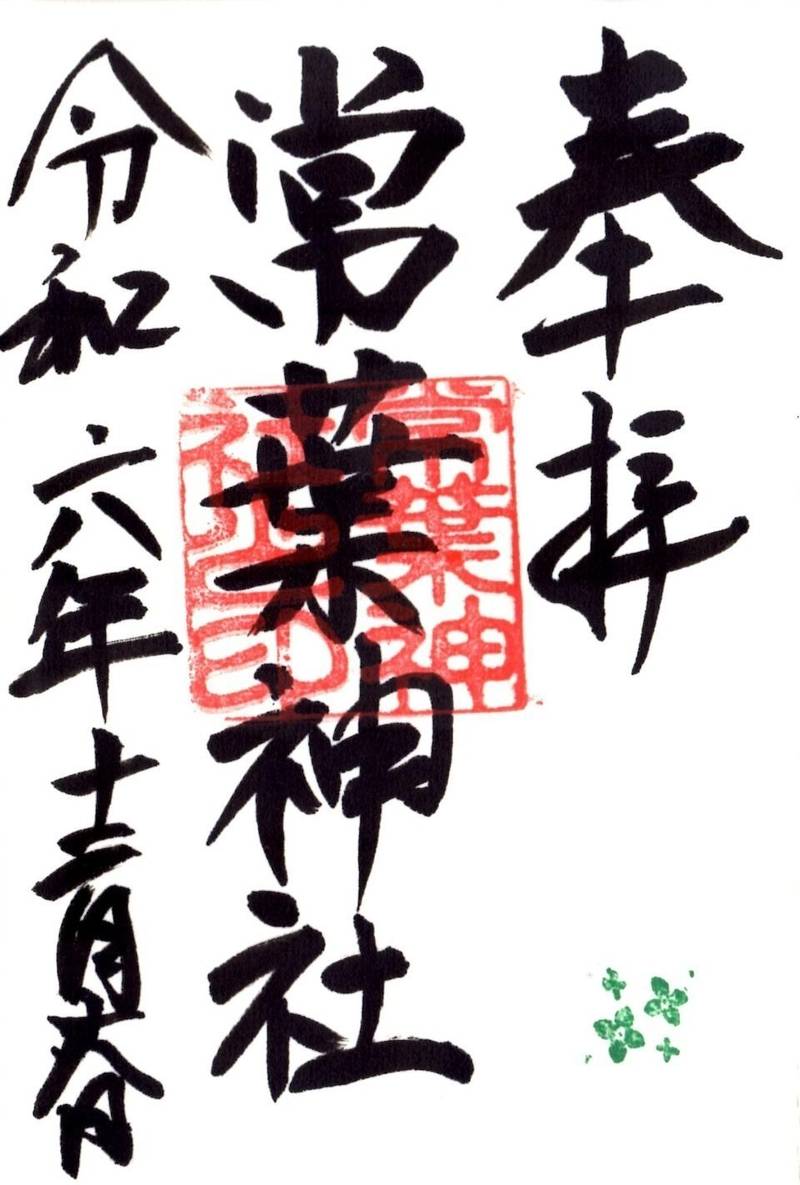 奉拝
常葉神社
令和六年十二月
常葉神
社之印